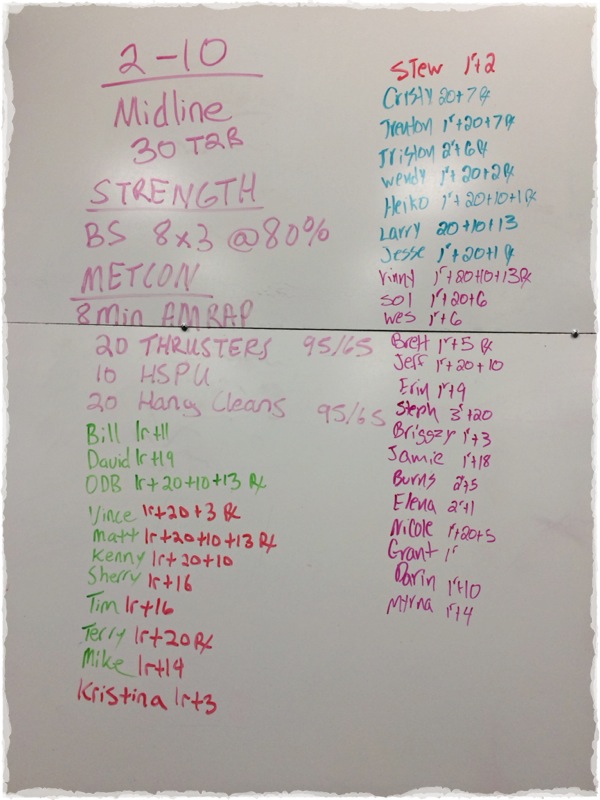 2-10
Midline
30 T2B
STRENGTH
BS 8x3 @80%
METCON
8 Min AMRAP
20 THRUSTERS 95/65
10 HSPU
20 Hang Cleans 95/65
Bill 1r+11
David 1r+19
ODB 1r+20+10+13 Rx
Vince 1r+20+3 Rx
Matt 1r+20+10+13 Rx
Kenny 1r+20+10
Sherry 1r+16
Tim 1r+16
Terry 1r+20 Rx
Mike 1r+14
Kristina 1r+3
Stew 1r+2
Cristy 20+7 Rx
Trenton 1r+20+7 Rx
Triston 2r+6 Rx
Wendy 1r+20+2 Rx
Heiko 1r+20+10+1 Rx
Larry 20+10+13
Jesse 1r+20+1 Rx
Vinny 1r+20+10+13 Rx
Sol 1r+20+6
Wes 1r+6
Brett 1r+5 Rx
Jeff 1r+20+10
Erin 1r+9
Steph 3r+20
Briggzy 1r+3
Jamie 1r+18
Burns 2r+5
Elena 2r+1
Nicole 1r+20+5
Grant 1r
Darin 1r+10
Myrna 1r+4